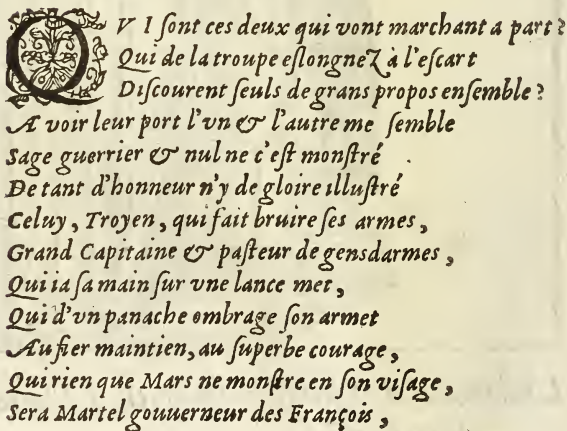 QVI ſont ces deux qui vont marchant a part?
Qui de la troupe eſlongnez à l'eſcart
Diſcourent ſeuls de grans propos enſemble?
A voir leur port l'vn & l'autre me ſemble
Sage guerrier & nul ne c'eſt monſtré
De tant d'honneur n'y de gloire illuſtré
Celuy, Troyen, qui fait bruire ſes armes,
Grand Capitaine & paſteur de gensdarmes,
Qui ia ſa main ſur vne lance met,
Qui d'vn panache ombrage ſon armet
Au fier maintien, au ſuperbe courage,
Qui rien que Mars ne monſtre en ſon viſage,
Sera Martel gouuerneur des François,